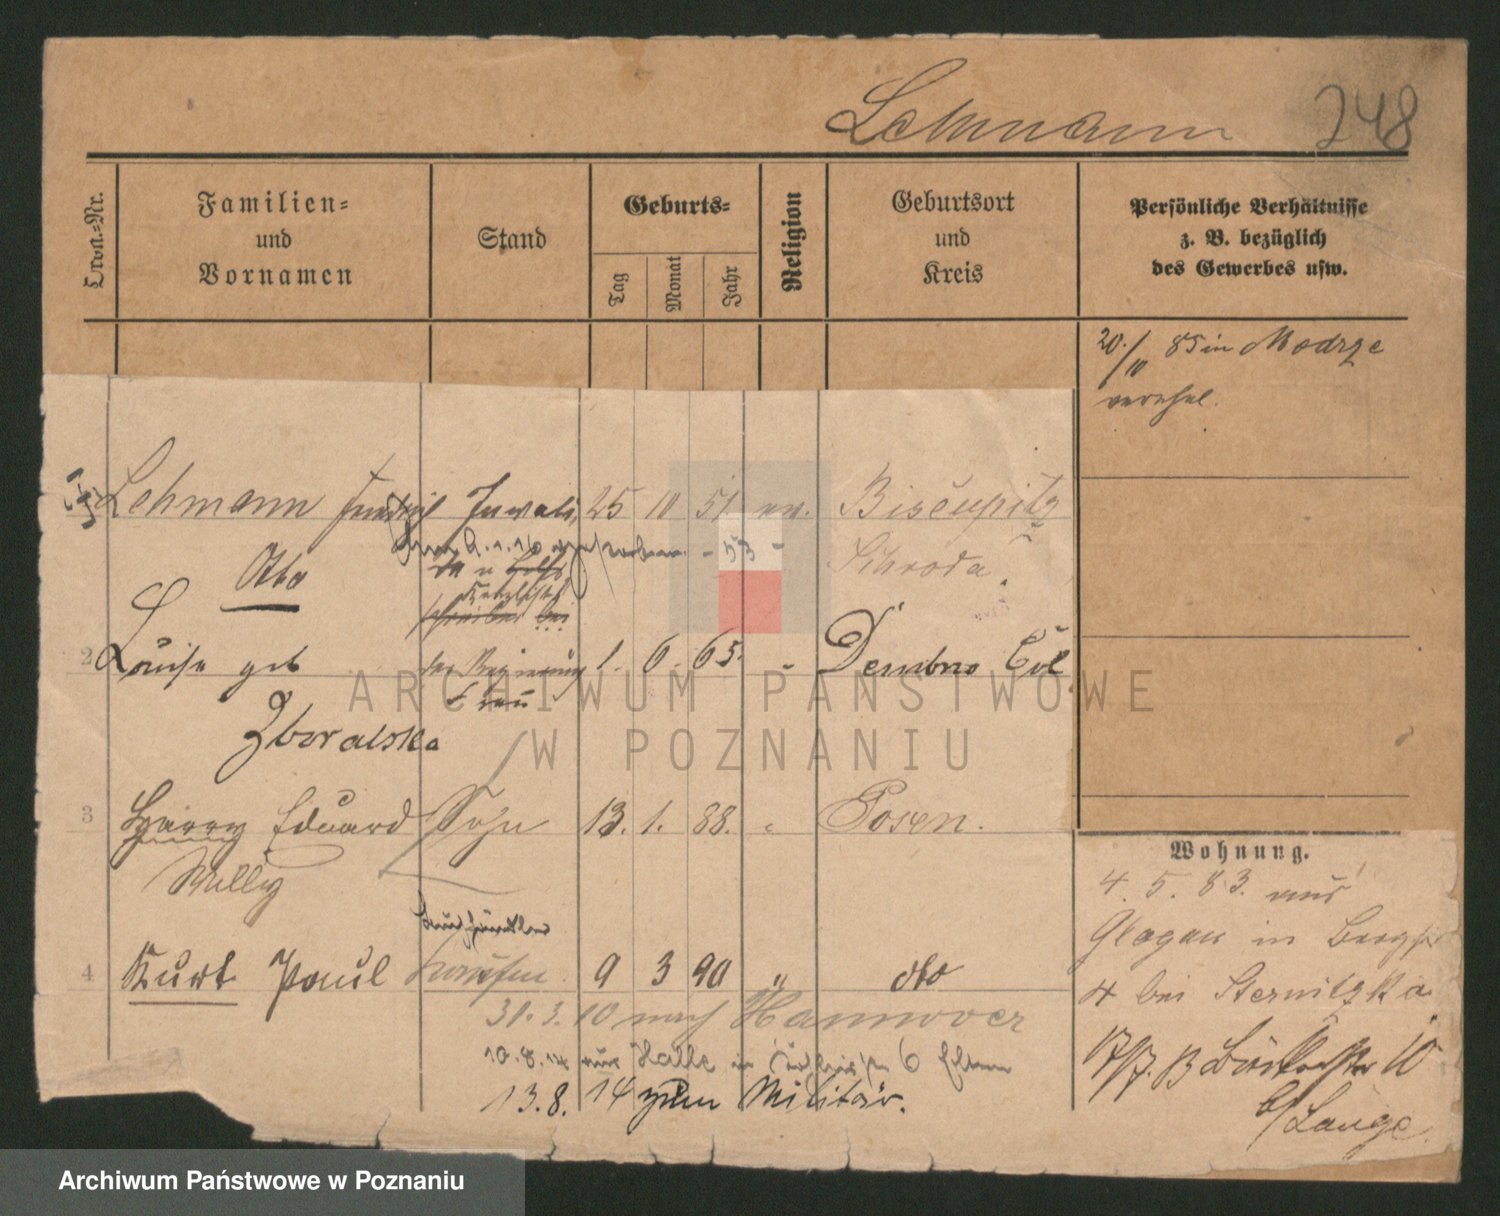 Lehmann 248
Lfd.-Nr.
Familien=
und
Vornamen
Stand
Geburts=
Tag
Monat
Jahr
Religion
Geburtsort
und
Kreis
Persönliche Verhältnisse
z. B. bezüglich
des Gewerbes usw.
20./10 85 in Modrze
verehel.
Lehmann Friedrich 25 10 51 ev.
Otto
- 53 -
Schroda
2 Louise geb 1. 6. 65. Dembno Col
der Regierung
Frau
Zboralska
3 Harry Eduard Sohn 13. 1. 88. Posen.
Willy
4 Kurt Paul 9 3 90 " dto
31. 3. 10 nach Hannover
10. 8. 14 aus Halle in 6 Eltern
13. 8. 14 zum Militär.
Wohnung.
4. 5. 83. aus
Glogau in
4 bei
17/7. 10
b/Lange.
ARCHIWUM PAŃSTWOWE
W POZNANIU
Archiwum Państwowe w Poznaniu